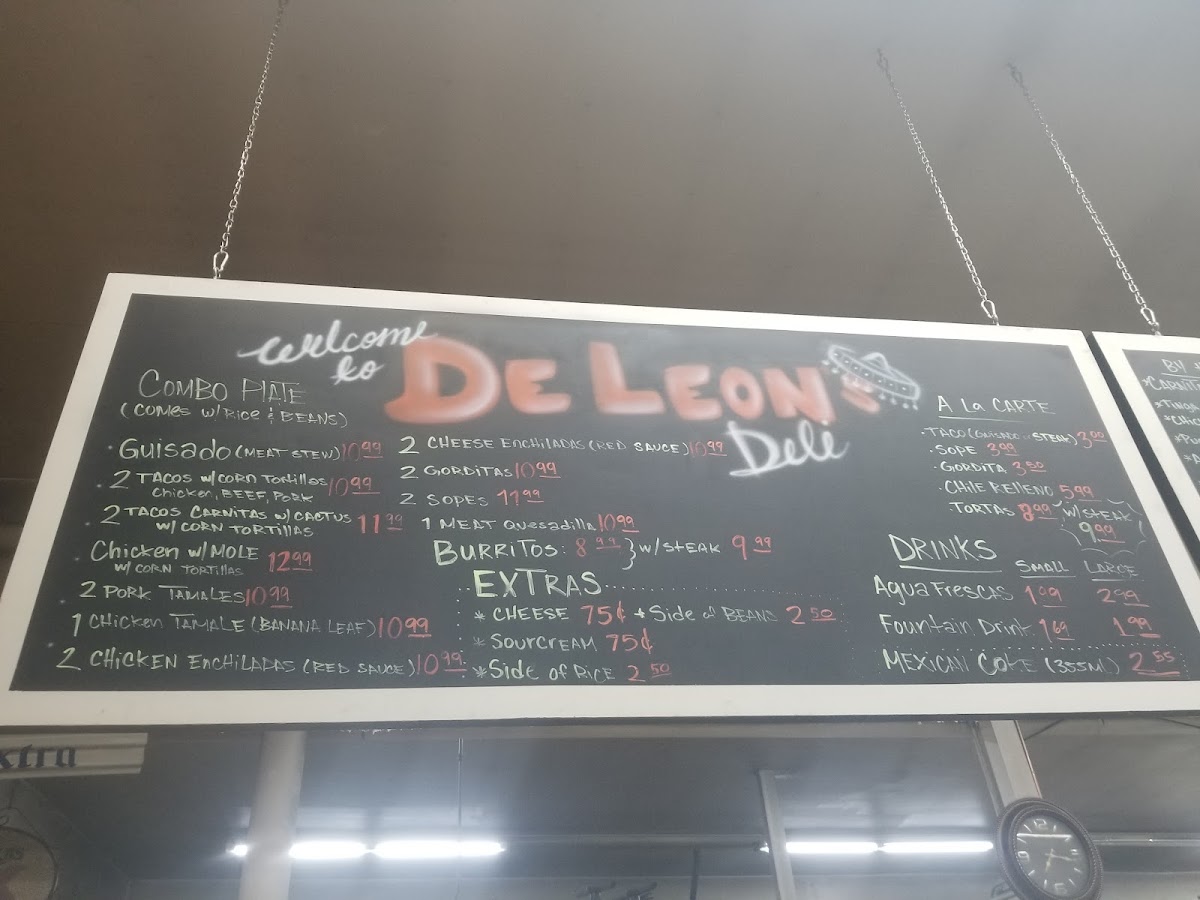 Welcome
to
DE LEON'S
Deli
COMBO PLATE
(COMES W/RICE & BEANS)
· GUISADO (MEAT STEW) 10.99
· 2 TACOS W/CORN TORTILLAS 10.99
Chicken, BEEF, PORK
· 2 TACOS CARNITAS W/CACTUS 11.99
W/CORN TORTILLAS
· Chicken W/MOLE 12.99
W/CORN TORTILLAS
· 2 PORK TAMALES 10.99
· 1 CHICKEN TAMALE (BANANA LEAF) 10.99
· 2 CHICKEN ENCHILADAS (RED SAUCE) 10.99
2 CHEESE ENCHILADAS (RED SAUCE) 10.99
2 GORDITAS 10.99
2 SOPES 11.99
1 MEAT Quesadilla 10.99
BURRITOS: 8.99 } W/STEAK 9.99
EXTRAS
* CHEESE 75¢ * Side of BEANS 2.50
* SOURCREAM 75¢
* Side of RICE 2.50
A La CARTE
· TACO (GUISADO - STEAK) 3.00
· SOPE 3.99
· GORDITA 3.50
· CHILE RELLENO 5.99
TORTAS 8.99 W/STEAK
9.99
DRINKS
SMALL LARGE
Agua Frescas 1.99 2.99
Fountain Drink 1.69 1.99
MEXICAN COKE (355ML) 2.55
BY
*CARNIT
xtra
12